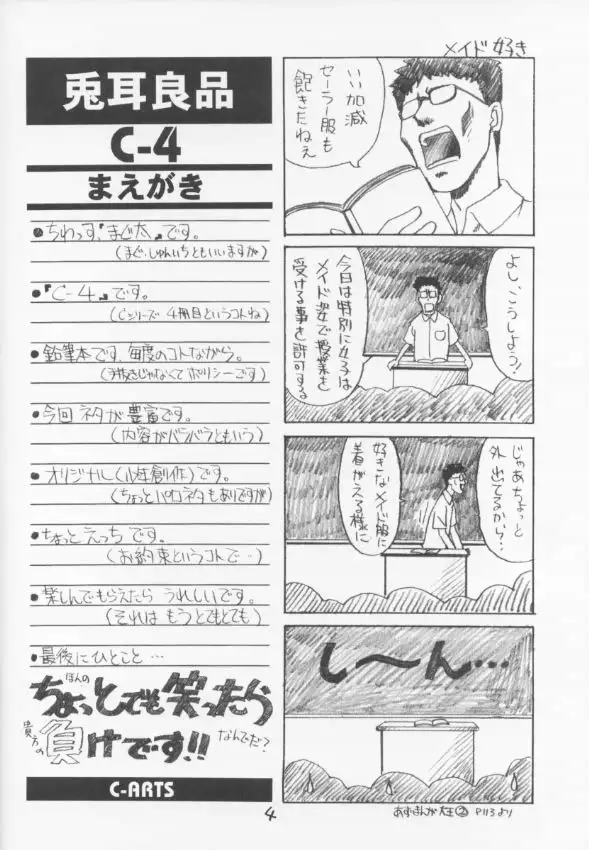 兎耳良品
C-4
まえがき
●ちわっす『まぐ太』です。
(まぐ・じゅんいちともいいますが)
●『C-4』です。
(Cシリーズ 4冊目というコトね)
●鉛筆本です。毎度のコトながら。
(手抜きじゃなくてポリシーです)
●今回ネタが豊富です。
(内容がバラバラともいう)
●オリジナル(小性創作)です。
(ちょっとパロネタもありですが)
●ちょっとえっちです。
(お約束というコトで…)
●楽しんでもらえたらうれしいです。
(それはもうとてもとても)
●最後にひとこと…
ほんの
ちょっとでも笑ったら
貴方の負けです!!
なんでだ?
C-ARTS
メイド好き
いい加減
セーラー服も
飽きたねえ
よし、こうしよう!
今日は特別に女子は
メイド姿で授業を
受ける事を許可する
じゃあちょっと
外出てるから…
好きなメイド服に
着がえる様に
し〜ん…
あずまんが大王② P113より
4